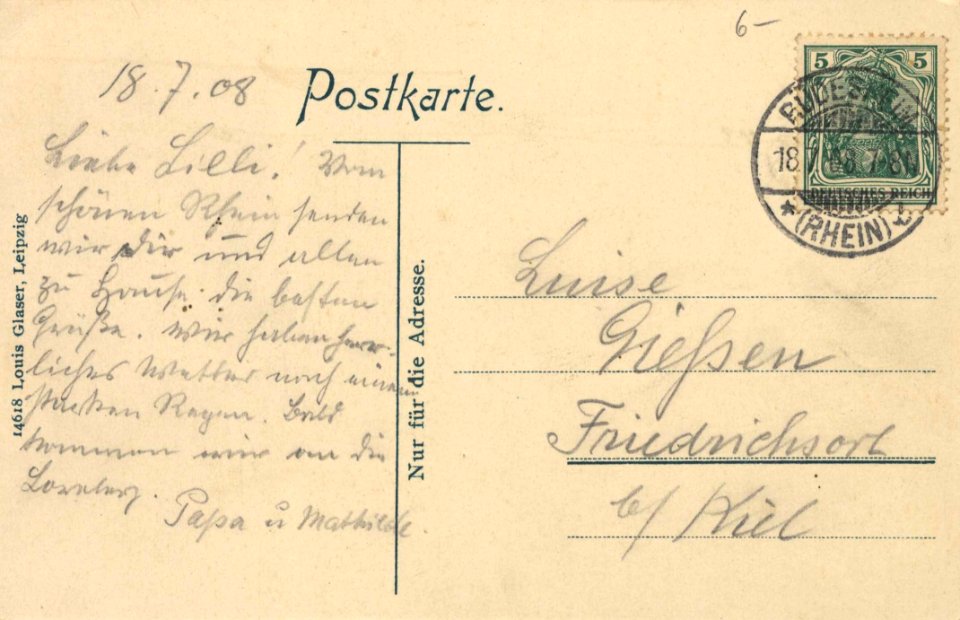 6-
18.7.08
Postkarte.
Liebe Lilli! Vom
schönen Rhein senden
wir Dir und allen
zu Hause die besten
Grüße. Wir haben herr-
liches Wetter nach einem
starken Regen. Bald
kommen wir an die
Loreley.
Papa u Mathilde.
14618 Louis Glaser, Leipzig
Nur für die Adresse.
5 5
DEUTSCHES REICH
18.7.08. 7-8
* (RHEIN)
Luise
Gießen
Friedrichsort
b/ Kiel